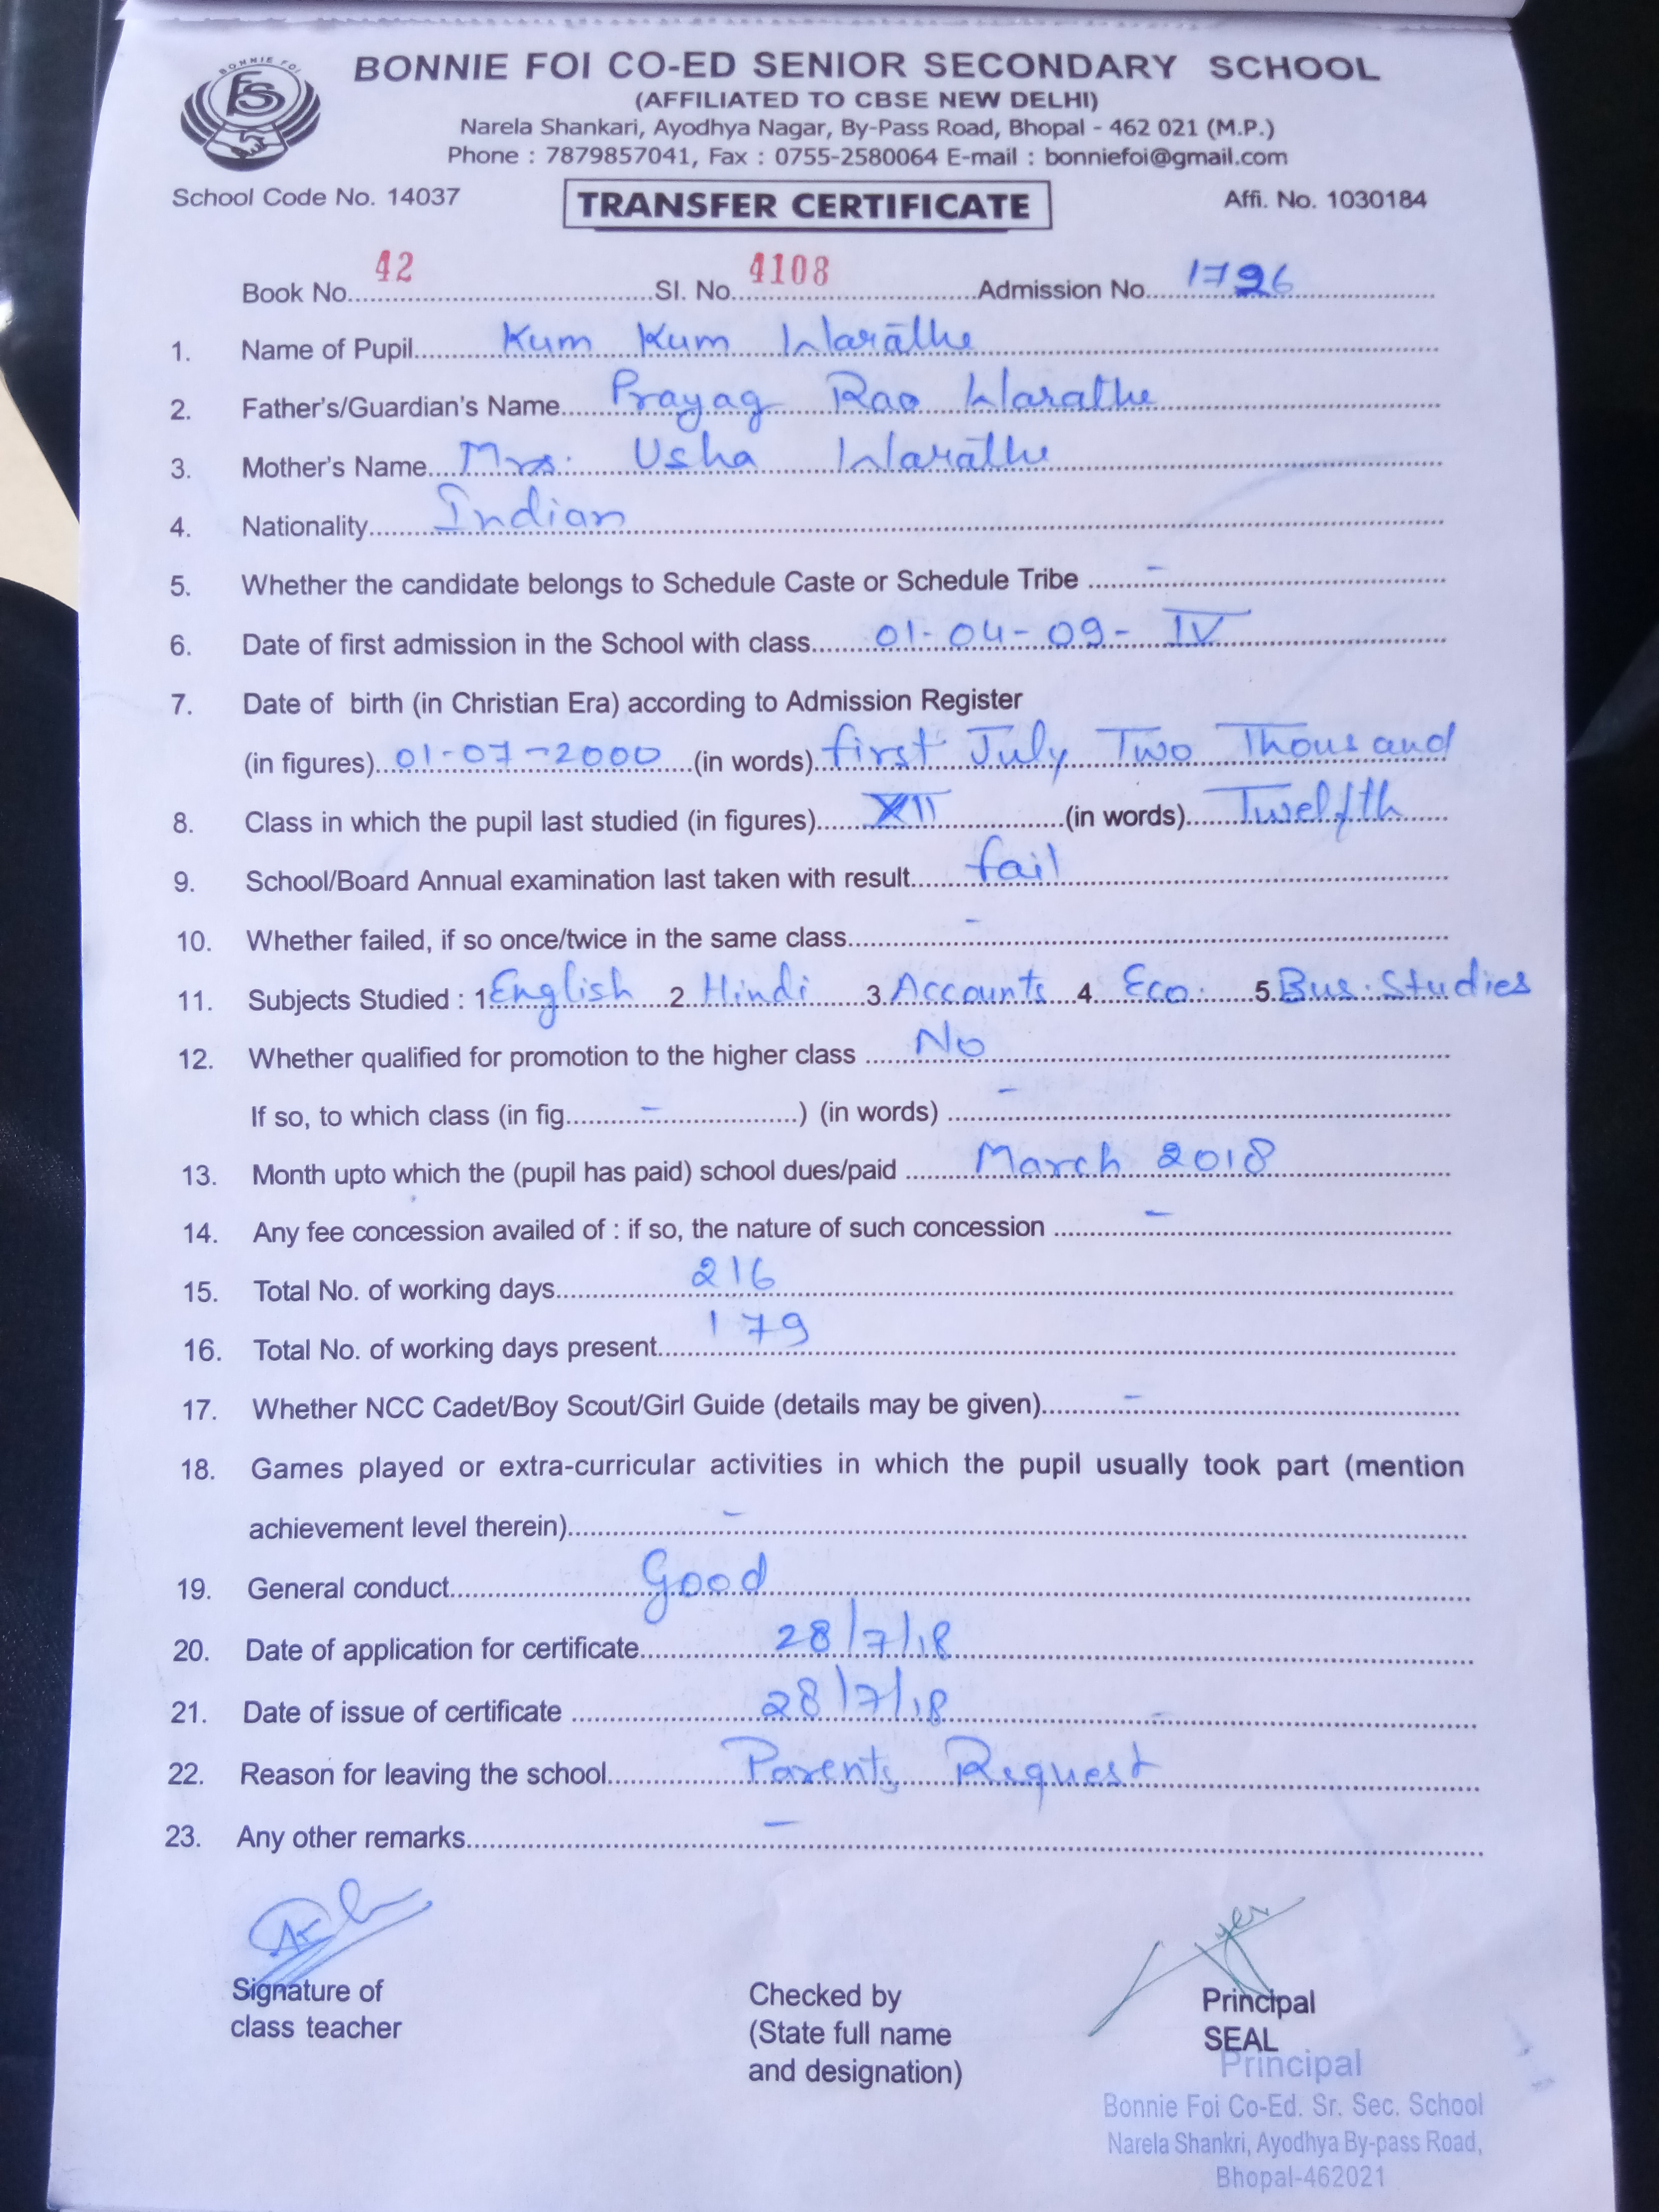 BONNIE FOI
FS
BONNIE FOI CO-ED SENIOR SECONDARY SCHOOL
(AFFILIATED TO CBSE NEW DELHI)
Narela Shankari, Ayodhya Nagar, By-Pass Road, Bhopal - 462 021 (M.P.)
Phone : 7879857041, Fax : 0755-2580064 E-mail : bonniefoi@gmail.com
School Code No. 14037 TRANSFER CERTIFICATE Affi. No. 1030184
Book No. 42 Sl. No. 4108 Admission No. 1796
1. Name of Pupil Kum Kum Warāthe
2. Father's/Guardian's Name Prayag Rao Warathe
3. Mother's Name Mrs. Usha Warāthe
4. Nationality Indian
5. Whether the candidate belongs to Schedule Caste or Schedule Tribe -
6. Date of first admission in the School with class 01-04-09- IV
7. Date of birth (in Christian Era) according to Admission Register
(in figures) 01-07-2000 (in words) first July Two Thousand
8. Class in which the pupil last studied (in figures) XII (in words) Twelfth
9. School/Board Annual examination last taken with result fail
10. Whether failed, if so once/twice in the same class -
11. Subjects Studied : 1 English 2 Hindi 3 Accounts 4 Eco. 5 Bus. Studies
12. Whether qualified for promotion to the higher class No
If so, to which class (in fig. - ) (in words) -
13. Month upto which the (pupil has paid) school dues/paid March 2018
14. Any fee concession availed of : if so, the nature of such concession -
15. Total No. of working days 216
16. Total No. of working days present 179
17. Whether NCC Cadet/Boy Scout/Girl Guide (details may be given) -
18. Games played or extra-curricular activities in which the pupil usually took part (mention
achievement level therein) -
19. General conduct Good
20. Date of application for certificate 28/7/18
21. Date of issue of certificate 28/7/18
22. Reason for leaving the school Parents Request
23. Any other remarks -
Signature of Checked by Principal
class teacher (State full name SEAL
and designation)
Principal
Bonnie Foi Co-Ed. Sr. Sec. School
Narela Shankri, Ayodhya By-pass Road,
Bhopal-462021